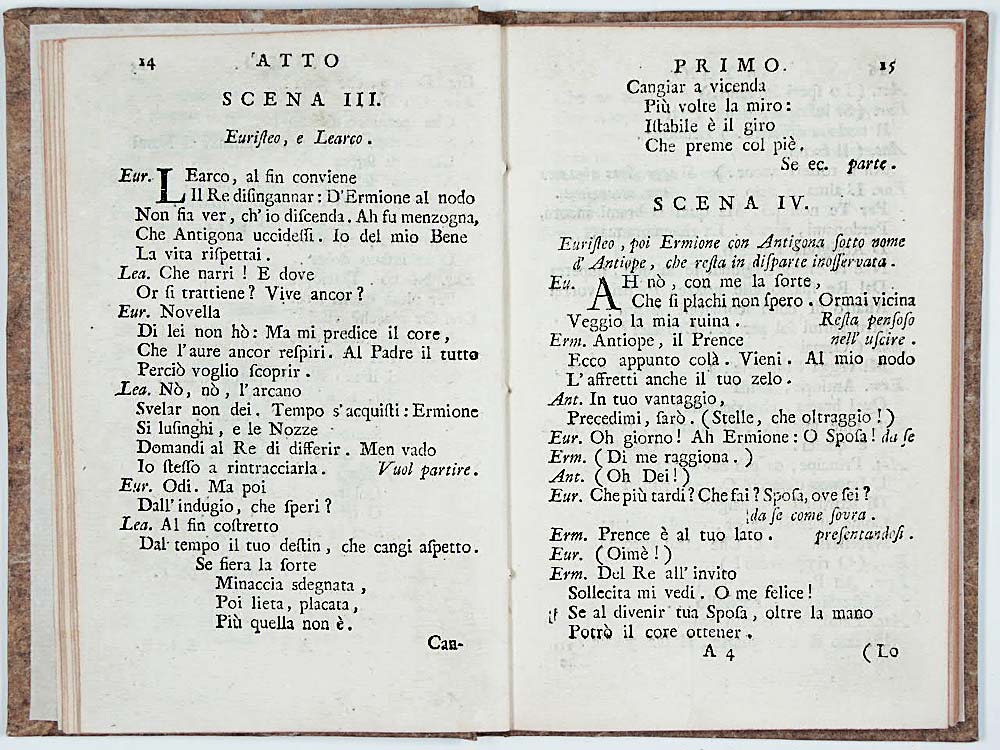 14 ATTO
SCENA III.
Euriſteo, e Learco.
Eur. LEarco, al fin conviene
Il Re diſingannar: D'Ermione al nodo
Non ſia ver, ch'io diſcenda. Ah fu menzogna,
Che Antigona uccideſſi. Io del mio Bene
La vita riſpettai.
Lea. Che narri! E dove
Or ſi trattiene? Vive ancor?
Eur. Novella
Di lei non hò: Ma mi predice il core,
Che l'aure ancor reſpiri. Al Padre il tutto
Perciò voglio ſcoprir.
Lea. Nò, nò, l'arcano
Svelar non dei. Tempo s'acquiſti: Ermione
Si luſinghi, e le Nozze
Domandi al Re di differir. Men vado
Io ſteſſo a rintracciarla. Vuol partire.
Eur. Odi. Ma poi
Dall'indugio, che ſperi?
Lea. Al fin coſtretto
Dal tempo il tuo deſtin, che cangi aſpetto.
Se fiera la ſorte
Minaccia sdegnata,
Poi lieta, placata,
Più quella non è.
Can-
PRIMO. 15
Cangiar a vicenda
Più volte la miro:
Iſtabile è il giro
Che preme col piè.
Se ec. parte.
SCENA IV.
Euriſteo, poi Ermione con Antigona ſotto nome
d'Antiope, che reſta in diſparte inoſſervata.
Eu. AH nò, con me la ſorte,
Che ſi plachi non ſpero. Ormai vicina
Veggio la mia ruina. Reſta penſoſo
Erm. Antiope, il Prence nell'uſcire.
Ecco appunto colà. Vieni. Al mio nodo
L'affretti anche il tuo zelo.
Ant. In tuo vantaggio,
Precedimi, ſarò. (Stelle, che oltraggio!)
Eur. Oh giorno! Ah Ermione: O Spoſa! da ſe
Erm. (Di me raggiona.)
Ant. (Oh Dei!)
Eur. Che più tardi? Che fai? Spoſa, ove ſei?
da ſe come ſovra.
Erm. Prence è al tuo lato. preſentandoſi.
Eur. (Oimè!)
Erm. Del Re all'invito
Sollecita mi vedi. O me felice!
Se al divenir tua Spoſa, oltre la mano
Potrò il core ottener.
A 4 (Lo